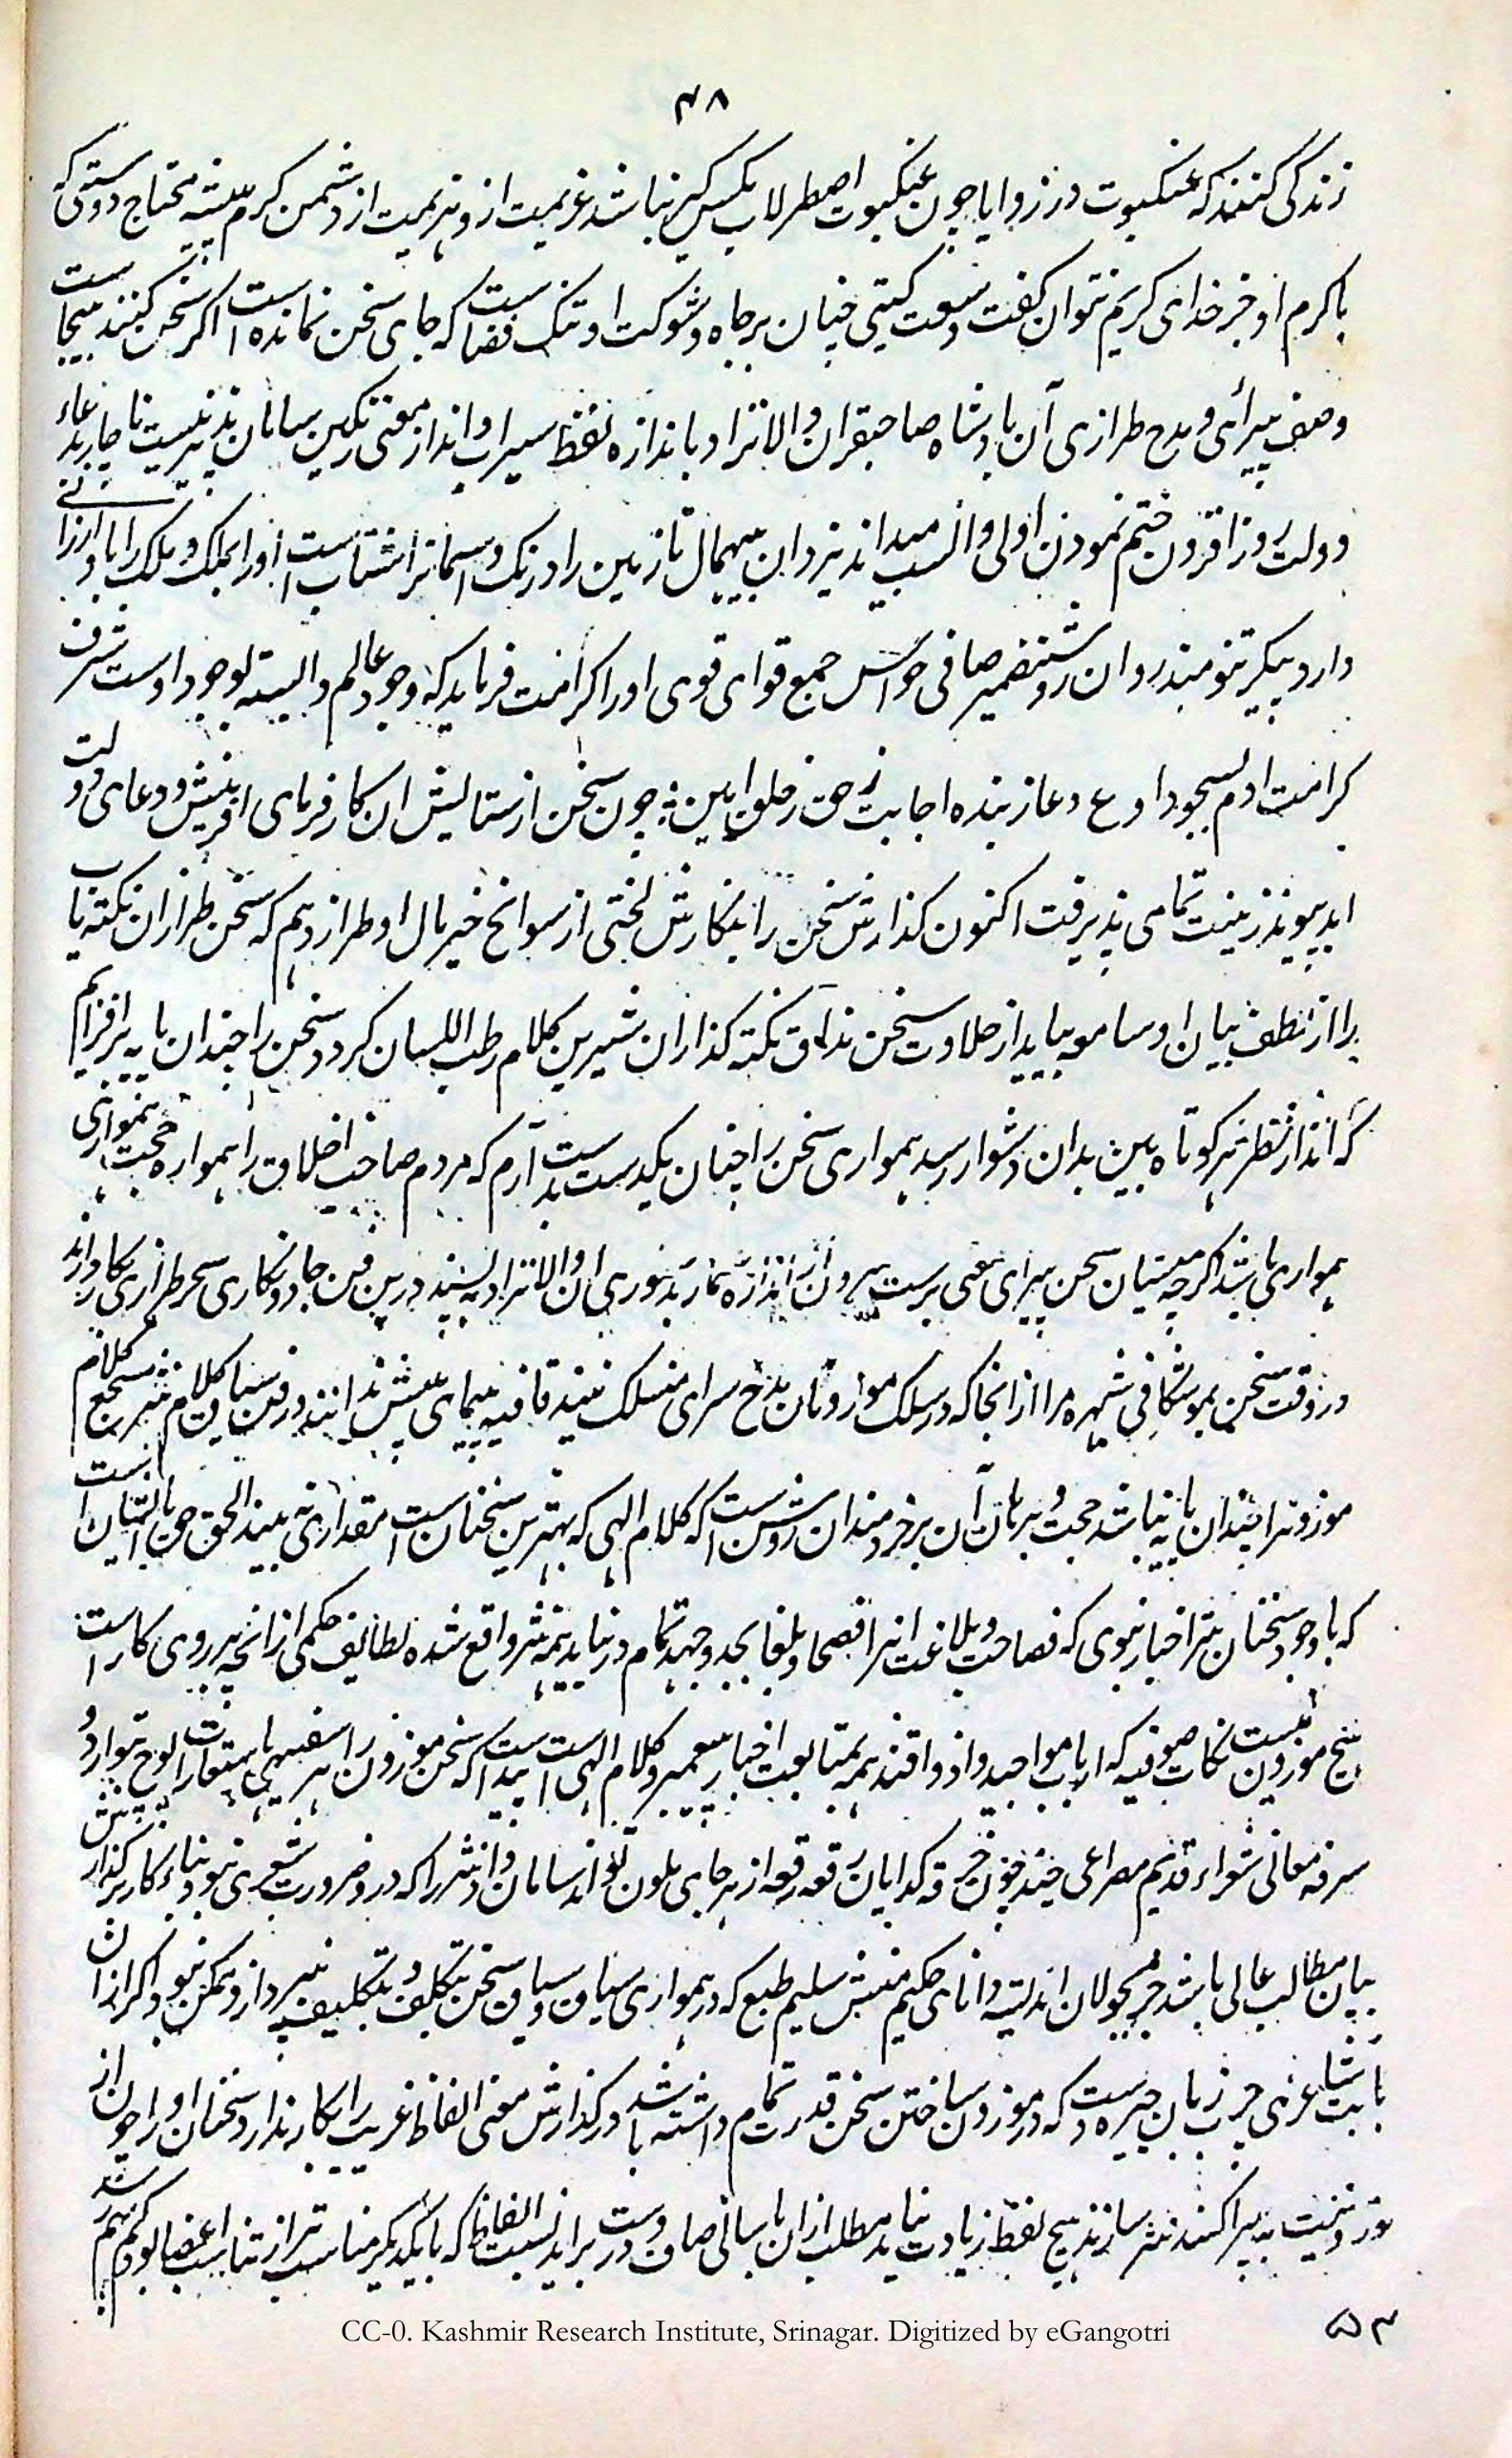 ۴۸
زندگی کنند که عنکبوت در زوایا چون عنکبوت اصطرلاب مکس گیر نباشد عزیمت از و هزیمت از دشمن کرم پیشه محتاج دوستی که
با کرم او جز خدای کریم نتوان گفت وسعت گیتی چنان بر جاه و شوکت او تنگ فضاست که جای سخن نمانده است اگر سخن کنند بیجاست
وصف پیرائی و مدح طرازی آن بادشاه صاحبقران والانژاد باندازه لفظ سیراب و انداز معنی رنگین سامان پذیر نیست ناچار بدعاء
دولت روز افزون ختم نمودن اولی و انسب میداند یزدان بیهمال تا زمین را درنگ و اسمانرا شتاب است او را بملک و ملک را باو ارزانی
دارد پیکر تنومند روان روشن ضمیر صافی حواس جمع قوای قوی او را کرامت فرماید که وجود عالم وابسته بوجود اوست شرف
کرامت ادم بسجود او ع دعا ز بنده اجابت ز حق ز خلق امین ؛ چون سخن از ستایش ان کارفرمای افرینش و دعای دولت
ابد پیوند زینت تمامی پذیرفت اکنون گذارش سخن را بنگارش لختی از سوانح خیر مال او طراز دهم که سخن طرازان نکته یاب
را از لطف بیان او سامعه بیاید از حلاوت سخن مذاق نکته گذاران شیرین کلام رطب اللسان گردد سخن را چندان پایه برافرازم
که انداز نظر هر کوتاه بین بدان دشوار رسد همواری سخن را چنان یکدست بدست آرم که مردم صاحب اخلاق را همواره حجت بنمواری
همواری باشد اگرچه میان سخن پیرای معنی پرست بیرون از اندازه شمارند بنوری ان والانژاد پسند درین فن جادونگاری سحر طرازی بکار دارند
در دقت سخن بموشگافی شهره مرا از انجا که در سلک موزونان مدح سرای منسلک نیند قافیه پیمای پیش ندانند و در فن سیاق کلام نثر مسجع کلام
موزونرا چندان پایه نباشد حجت و برهان آن بر خردمندان روشن است که کلام الهی که بهترین سخنان است الحق حق بجانب ایشان است
که با وجود سخنان نثر اخبار نبوی که فصاحت و بلاغت انرا فصحا و بلغا بجد و جهد تمام در نیابد همه نثر واقع شده لطایف حکمی از انچه بر روی کار است
هیچ موزون نیست نکات صوفیه که ارباب مواجید و اذواقند همه بمتابعت اخبار پیغمبر و کلام الهی است پیداست که سخن موزون را هر سفیهی باستعارات الوح توارد و
سرقه معانی شعراء قدیم مصراعی چند چون خرقه گدایان رقعه رقعه از هر جای بلون تواند سامان داد نثر را که در و ضرورت شعری نبود بناء کار بر گذارش
بیان مطالب عالی باشد جز بجولان اندیشه دانای حکیم منش سلیم طبع که در همواری سیاق و سباق سخن بتکلف و تکلیف نپردازد ممکن نبود اگر از ان
بابت شاعری چرب زبان چیره دست که در موزون ساختن سخن قدرت تمام داشته باشد و در گذارش معنی الفاظ غریب را بکار ندارد سخنان او را چون از
نوردنیت به پراکنند نثر سازند هیچ لفظ زیادت نیاید مطلب از ان باسانی صاف و درست براید نسبت الفاظ که با یکدیگر مناسب تر از تناسب اعضا بود کم بهم رسد
۵۳
CC-0. Kashmir Research Institute, Srinagar. Digitized by eGangotri